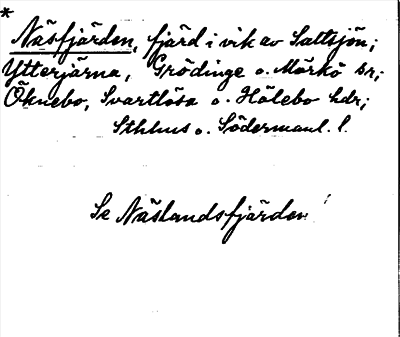 *
Näsfjärden, fjärd i vik av Saltsjön;
Ytterjärna, Grödinge o. Mörkö sr;
Öknebo, Svartlösa o. Hölebo hdr;
Sthlms o. Södermanl. l.
Se Näslandsfjärden